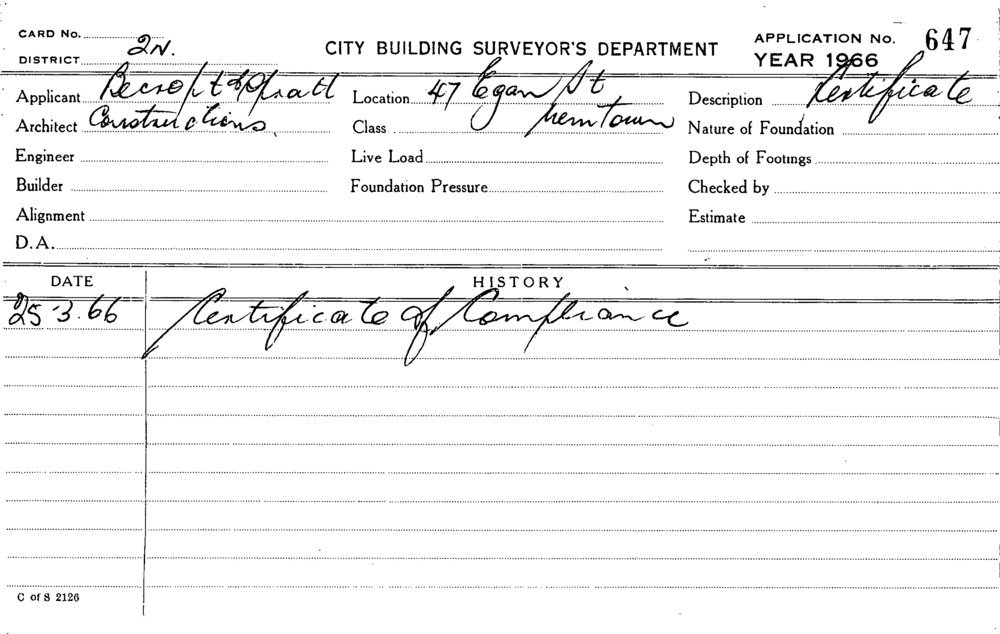 CARD No.
DISTRICT 2N.
CITY BUILDING SURVEYOR'S DEPARTMENT
APPLICATION No. 647
YEAR 1966
Applicant & Pratt
Location 47 Egan St
Description Certificate
Architect Constructions.
Class Newtown
Nature of Foundation
Engineer
Live Load
Depth of Footings
Builder
Foundation Pressure
Checked by
Alignment
Estimate
D.A.
DATE
HISTORY
25.3.66 Certificate of Compliance
C of S 2126